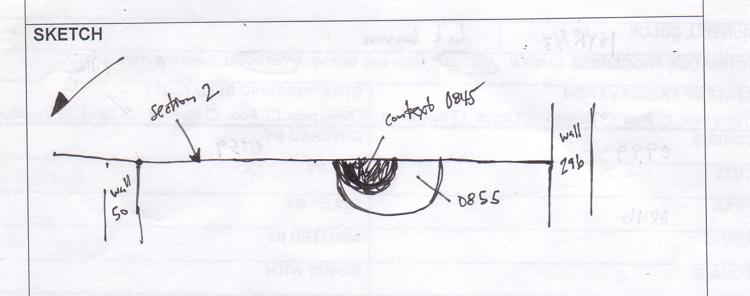 SKETCH
section 2
context 0845
wall
296
wall
50
0855